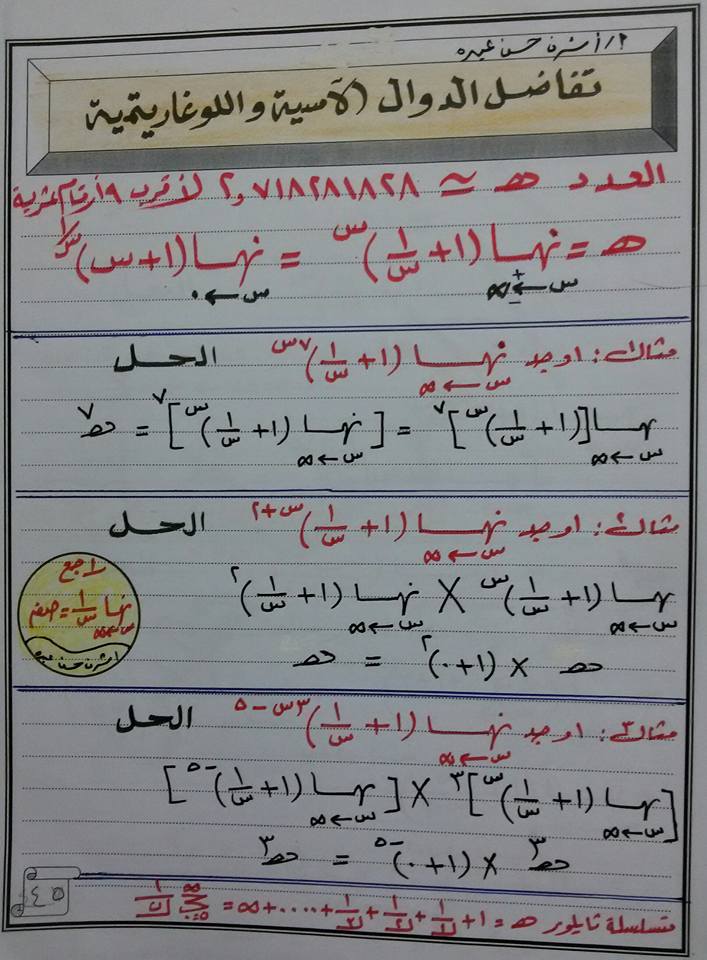 أ/ أشرف حسن عبده
تفاضل الدوال الآسية واللوغاريتمية
العدد هـ ≃ ٢,٧١٨٢٨١٨٢٨ لأقرب ٩ أرقام عشرية
هـ = نهـــا (١ + ١/س)^س = نهـــا (١ + س)^(١/س)
س ← ±∞ س ← ٠
مثال١: اوجد نهـــا (١ + ١/س)^٧س الحل
س ← ∞
نهـــا [(١ + ١/س)^س]^٧ = [نهـــا (١ + ١/س)^س]^٧ = هـ^٧
س ← ∞ س ← ∞
مثال٢: اوجد نهـــا (١ + ١/س)^(س+٢) الحل
س ← ∞
نهـــا (١ + ١/س)^س × نهـــا (١ + ١/س)^٢
س ← ∞ س ← ∞
هـ × (١ + ٠)^٢ = هـ
راجع
نهـا ١/س = صفر
س ← ∞
أشرف حسن عبده
مثال٣: اوجد نهـــا (١ + ١/س)^(٣س - ٥) الحل
س ← ∞
[نهـــا (١ + ١/س)^س]^٣ × [نهـــا (١ + ١/س)^-٥]
س ← ∞ س ← ∞
هـ^٣ × (١ + ٠)^-٥ = هـ^٣
متسلسلة تايلور هـ = ١ + ١/١ + ١/٢ + ١/٣ + .... + ∞ = ∑
٤٥